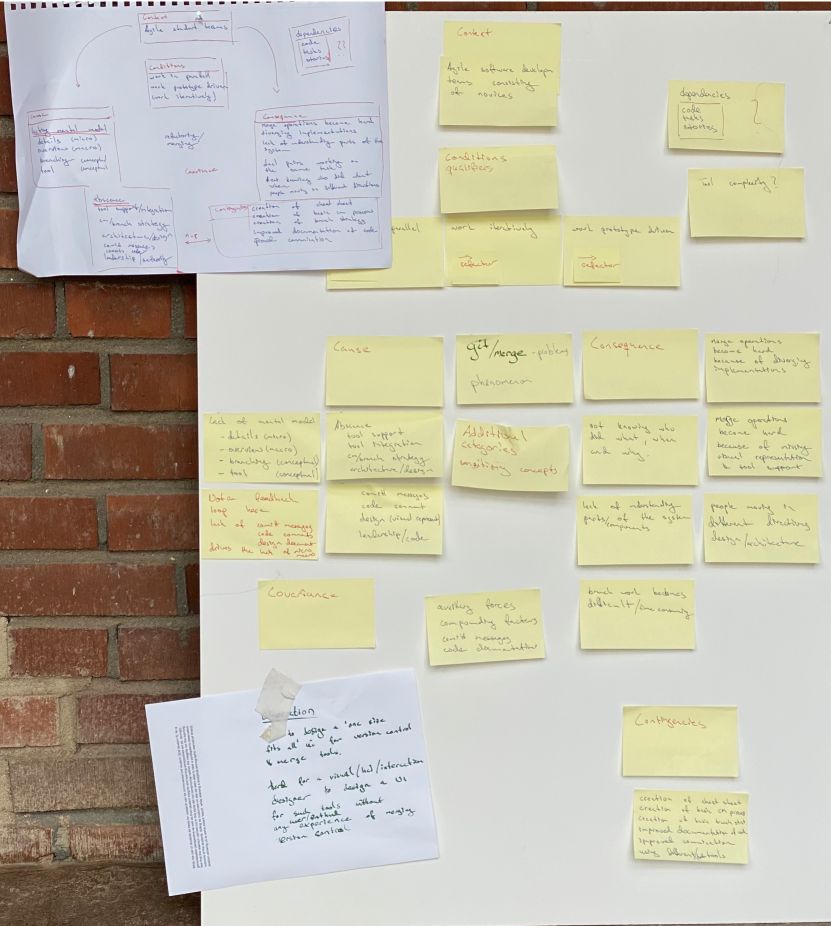 Context
Agile student teams
dependencies
code
tasks
stories
??
Conditions
work in parallel
work prototype driven
work iteratively
lacking mental model
details (micro)
overview (macro)
branching (conceptual)
tool (conceptual)
refactoring/
merging
Covariance
Consequence
merge operations become hard
diverging implementations
lack of understanding parts of the
system
working on
the same task
not knowing who did what
when
people moving in different directions
Abscence
tool support/integration
cm/branch strategy
architecture/design
commit messages
leadership/
creation of cheat sheet
creation of basic cm process
creation of branch strategy
improved documentation of code
Context
Agile software develop
teams consisting
of novices
dependencies
code
tasks
stories
Conditions
qualifiers
Tool complexity?
parallel
work iteratively
refactor
work prototype driven
refactor
Cause
git/merge - problems
phenomenon
Consequence
merge operations
become hard
because of diverging
implementations
lack of mental model
- details (micro)
- overview (macro)
- branching (conceptual)
- tool (conceptual)
Abscence
tool support
tool integration
cm/branch strategy
architecture/design
Additional
categories
sensitizing concepts
not knowing who
did what, when
and why.
merge operations
become hard
because of missing
visual representation
& tool support
feedback
loop here
lack of commit messages
code comments
design document
drives the lack of micro
macro
commit messages
code comment
design (visual represent)
leadership/code
lack of understanding
parts/ of the system
components
people moving in
different directions
design/architecture
Coveriance
auxilery forces
compounding factors
commit messages
code documentation
branch work becomes
difficult/
to design a 'one size
fits all' UI for version control
& merge tools.
hard for a visual/hci/interaction
designer to design a UI
for such tools without
any
experience of merging
version control
Contingencies
creation of cheat sheet
creation of basic cm process
creation of basic branch strat
improved documentation of code
improved communication
using different tools